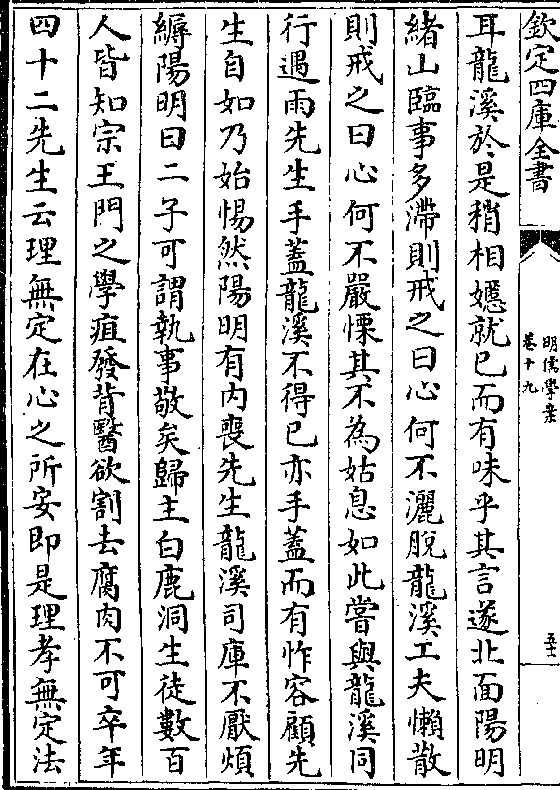 欽定四庫全書
明儒學案
卷十九
耳龍溪於是稍相嬺就已而有味乎其言遂北面陽明
緒山臨事多滯則戒之曰心何不灑脱龍溪工夫懶散
則戒之曰心何不嚴慄其不為姑息如此嘗與龍溪同
行遇雨先生手葢龍溪不得已亦手葢而有怍容顧先
生自如乃始惕然陽明有内喪先生龍溪司庫不厭煩
縟陽明曰二子可謂執事敬矣歸主白鹿洞生徒數百
人皆知宗王門之學疽發背醫欲割去腐肉不可卒年
四十二先生云理無定在心之所安即是理孝無定法